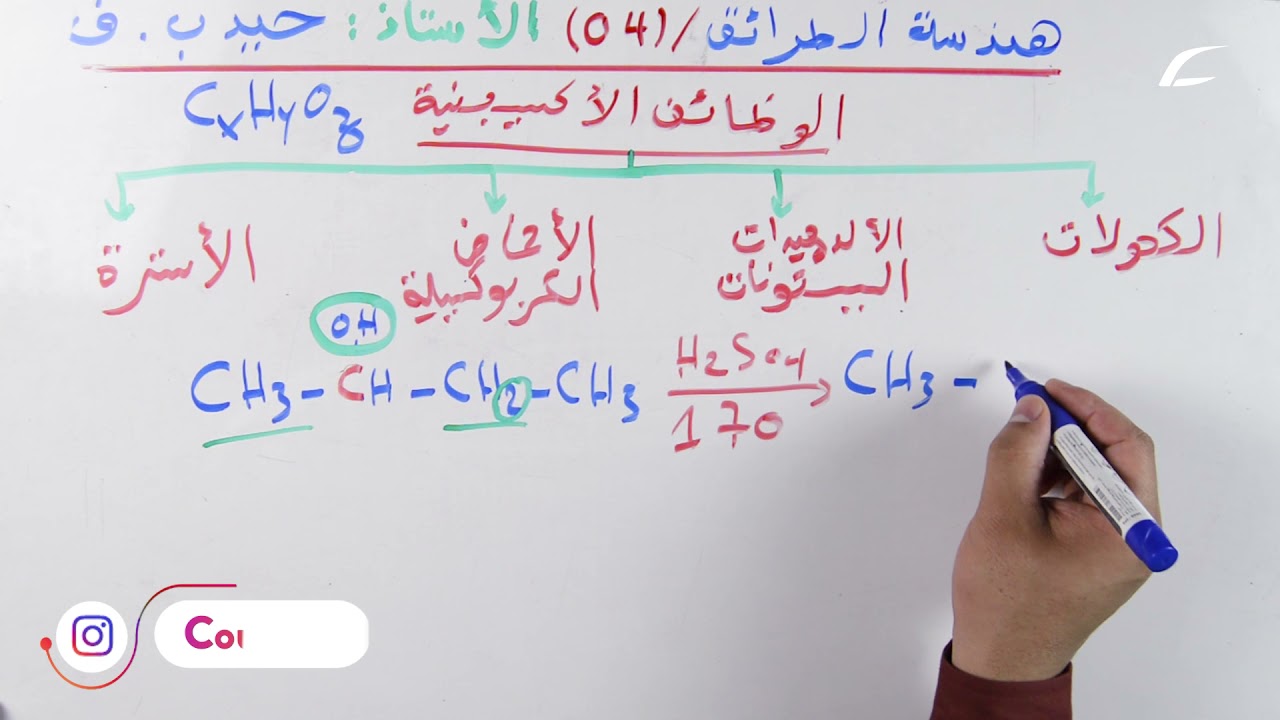 هندسة الطرائق/(04) الأستاذ: حيدب.ف
الوظائف الأكسيجينية CxHyOz
الكحولات
الألدهيدات
السيتونات
الأحماض
الكربوكسيلية
الأسترة
OH
CH3-CH-CH2-CH3 H2SO4 CH3-
170
Cou